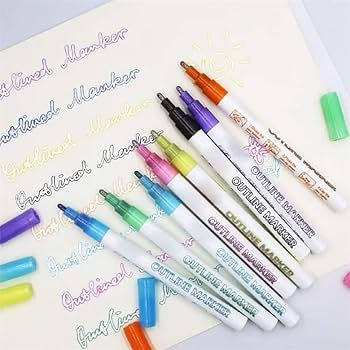 Outlined Marker
Outlined Marker
Outlined Marker
Outlined Marker
Outlined
Outlined
Outlined
OUTLINE MARKER
OUTLINE MARKER
OUTLINE MARKER
OUTLINE MARKER
OUTLINE MARKER
OUTLINE MARKER
OUTLINE MARKER